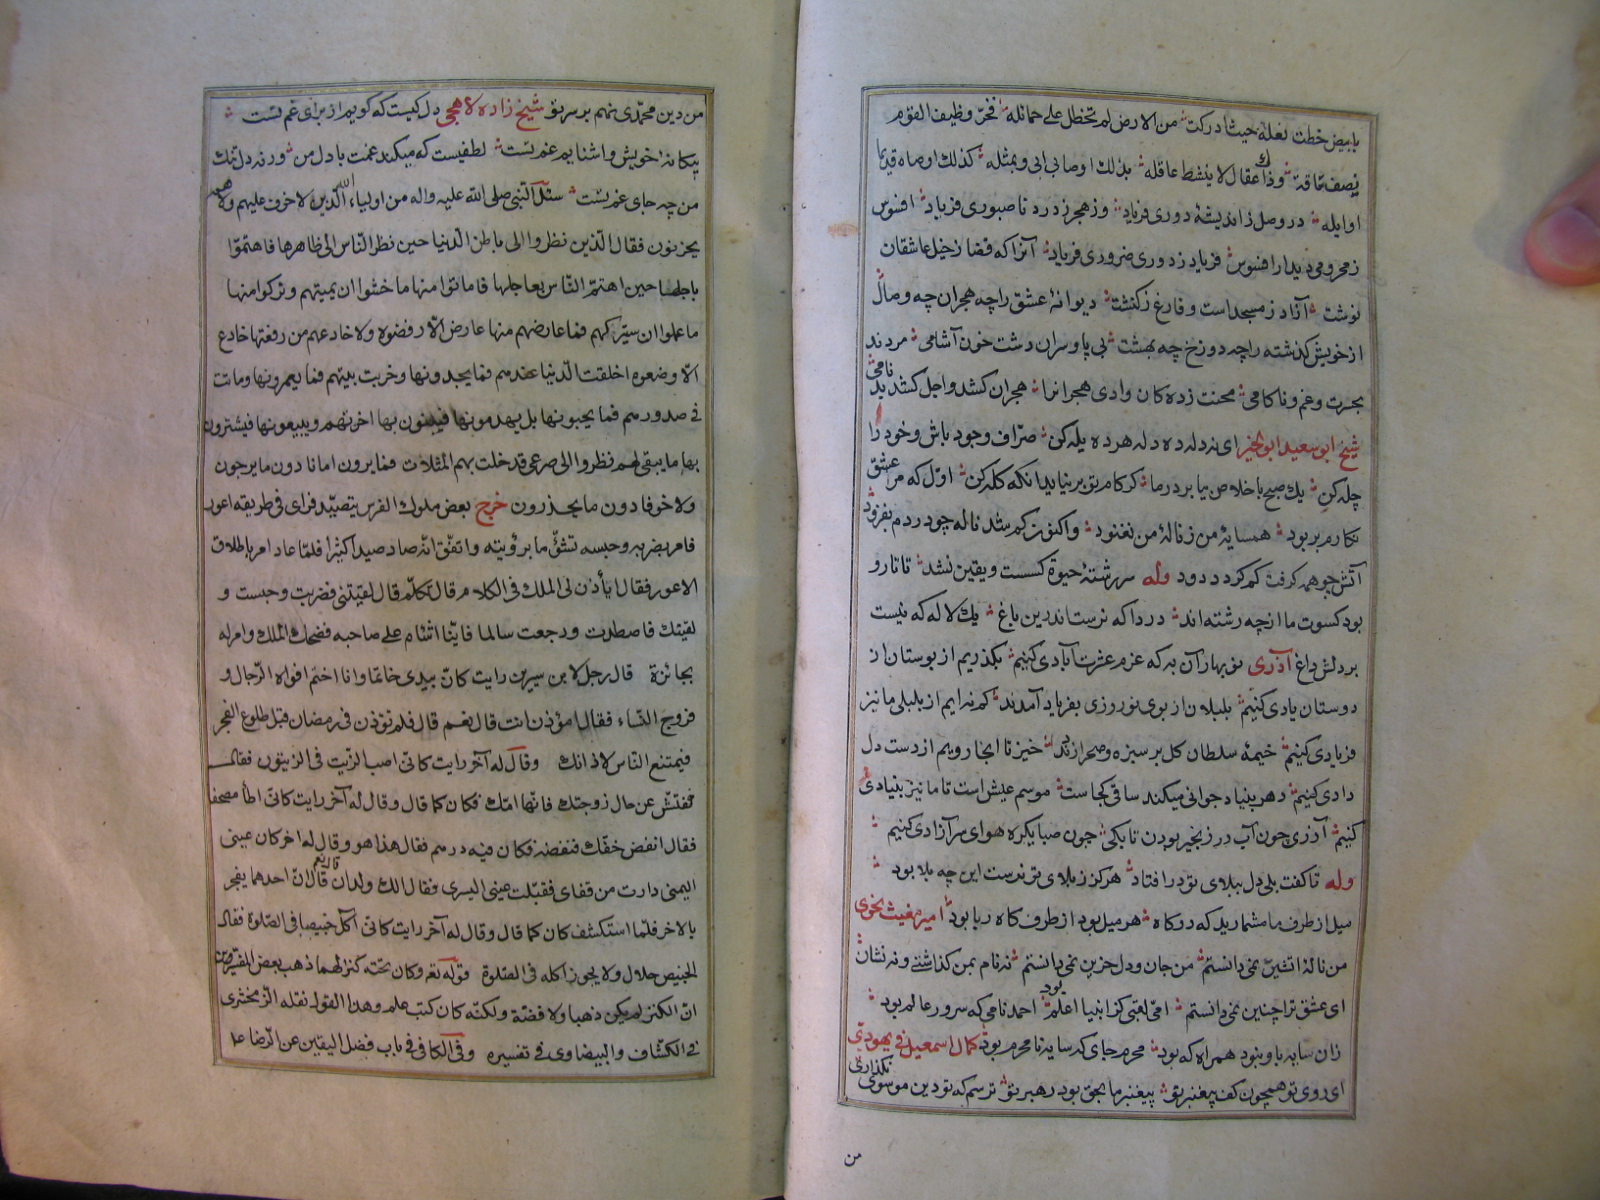 بابیض خطت نعله حیث ادرکت من الارض لم تخطل علی حمائله فخر وظیف القوم
نصف ساقه وذاک عقال لا ینشط عاقله بذلک اوصانی ابی وبمثله کذلک اوصاه قدیما
اوایله در وصل ز اندیشۀ دوری فریاد وز هجر ز درد ناصبوری فریاد افسوس
ز محرومی دیدار افسوس فریاد ز دوری ضروری فریاد آنرا که قضا ز خیل عاشقان
نوشت آزاد ز مسجد است و فارغ ز کنشت دیوانۀ عشق را چه هجران چه وصال
از خویش گذشته را چه دوزخ چه بهشت بی پا و سران دشت خون آشامی مردند
بحسرت و غم و ناکامی محنت زده کان وادی هجر انرا هجران کشد و اجل کشد بد نامی
شیخ ابو سعید ابو الخیر ای نه دله ده دله هر ده یله کن صراف وجود باش و خود را
چله کن یک صبح باخلاص بیا بر در ما گر کام تو بر نیاید انکه گله کن اول که مرا عشق
نگارم بربود همسایۀ من ز نالۀ من نغنود واکنون کم شد ناله چو دردم بفزود
آتش چو همه گرفت کم گردد دود وله سر رشتۀ حیوة گسست و یقین نشد تا تار و
بود کسوت ما از چه رشته اند دردا که نرست اندرین باغ یک لاله که نیست
بر دلش داغ آذری نو بهار آن به که عزم عشرت آبادی کنیم بگذریم از بوستان از
دوستان یادی کنیم بلبلان از بوی نوروزی بفریاد آمدند کم نه ایم از بلبلی ما نیز
فریادی کنیم خیمه سلطان گل بر سبزه و صحرا زدند خیز تا انجا رویم از دست دل
دادی کنیم دهر بنیاد جوانی میکند ساقی کجاست موسم عیش است تا ما نیز بنیادی
کنیم آذری چون آب در زنجیر بودن تا بکی چون صبا یکره هوای سر آزادی کنیم
وله تا گفت بلی دل ببلای تو در افتاد هرگز ز بلای تو نرست این چه بلا بود
میل از طرف ما مشمارید که در کاه هر میل بود از طرف کاه ربا بود امیر مغیث نحوی
من نالۀ اتشین نمی دانستم من جان و دل حزین نمی دانستم نه نام بمن گذاشتی و نه نشان
ای عشق ترا چنین نمی دانستم امی لقبی کز انبیا اعلم بود احمد نامی که سرور عالم بود
زان سایه باو نبود همراه که بود محرم جای که سایه نا محرم بود کمال اسمعیل فی یهودی
ای روی تو همچون کف پیغمبر تو پیغمبر ما بحق بود رهبر تو ترسم که تو دین موسوی نگذاری
من
من دین محمدی نهم بر سر تو شیخ زاده لاهجی دل کیست که گویم از برای غم تست
بیکانه خویش و اشنایم غم تست لطفیست که میکند غمت با دل من ورنه دل تنگ
من چه جای غم تست سئل النبی صلی الله علیه واله من اولیاء الله الذین لا خوف علیهم ولا هم
یحزنون فقال الذین نظروا الی باطن الدنیا حین نظر الناس الی ظاهرها فاهتموا
باجلها حین اهتم الناس بعاجلها فاماتوا منها ما خشوا ان یمیتهم وترکوا منها
ما علموا ان سیترکهم فما عارضهم منها عارض الا رفضوه ولا خادعهم من رفعتها خادع
الا وضعوه اخلقت الدنیا عندهم فما یجددونها وخربت بینهم فما یعمرونها وماتت
فی صدورهم فما یحیونها بل یهدمونها فیبنون بها اخرتهم ویبیعونها فیشترون
بها ما یبقی لهم نظروا الی صرعی قد خلت بهم المثلات فما یرون امانا دون ما یرجون
ولا خوفا دون ما یحذرون خرج بعض ملوک الفرس یتصید فرای فی طریقه اعور
فامر بضربه وحبسه تشؤما برؤیته واتفق انه صاد صیدا کثیرا فلما عاد امر باطلاق
الاعور فقال یأذن لی الملک فی الکلام قال تکلم قال لقیتنی فضربت وحبست و
لقیتک فاصطدت ورجعت سالما فاینا اشئام علی صاحبه فضحک الملک وامر له
بجائزة قال رجل لابن سیرین رایت کان بیدی خاتما وانا اختم افواه الرجال و
فروج النساء فقال امؤذن انت قال نعم قال فلم تؤذن فی رمضان قبل طلوع الفجر
فیمتنع الناس لاذانک وقال له آخر رایت کانی اصب الزیت فی الزیتون فقال
ففتش عن حال زوجتک فانها امک فکان کما قال وقال له آخر رایت کانی اطأ مصحفا
فقال انفض خفک فنفضه فکان فیه درهم فقال هذا هو وقال له اخر کان عینی
الیمنی دارت من قفای فقبلت عینی الیسری فقال الک ولدان قال نعم قال ان احدهما یفجر
بالاخر فلما استکشف کان کما قال وقال له آخر رایت کانی آکل خبیصا فی الصلوة فقال
الخبیص حلال ولا یجوز اکله فی الصلوة قوله تعالی وکان تحته کنز لهما ذهب بعض المفسرین
ان الکنز لم یکن ذهبا ولا فضة ولکنه کان کتب علم وهذا القول نقله الزمخشری
فی الکشاف والبیضاوی فی تفسیره وفی الکافی فی باب فضل الیقین عن الرضا